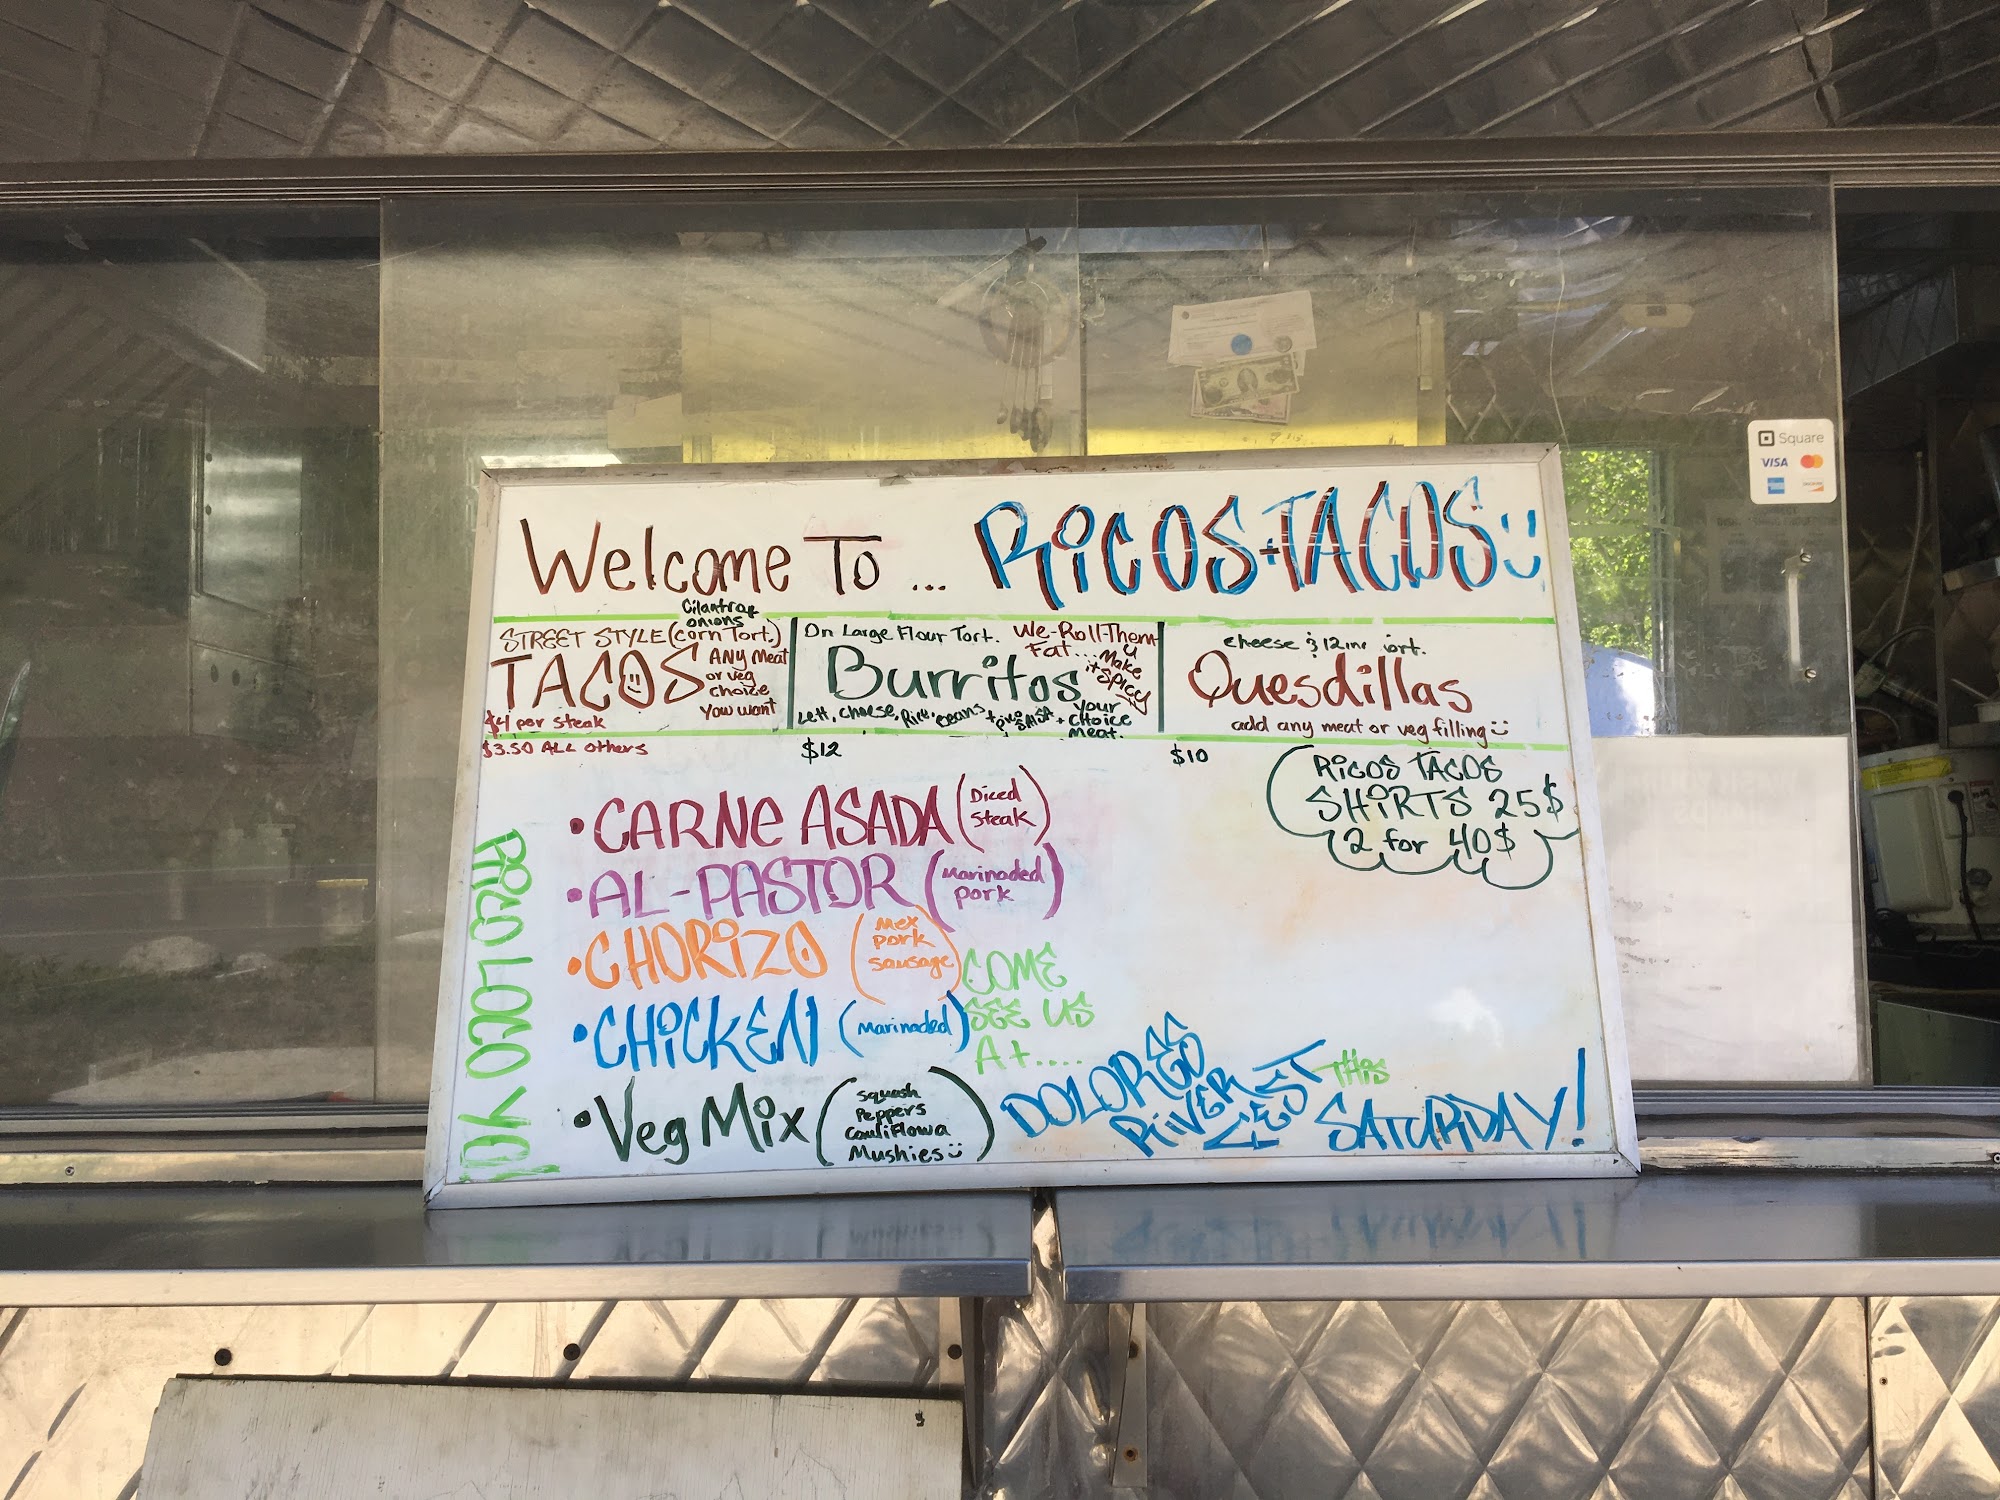 Welcome To ... Ricos+Tacos
Cilantro &
onions
STREET STYLE (corn Tort.)
TACOS
ANY Meat
or veg
choice
You want
$4 per steak
$3.50 ALL others
On Large Flour Tort.
We-Roll-Them
Fat...
u
Make
it Spicy
Burritos
Lett, cheese, Rice, Beans + SALSA +
your
choice
meat.
$12
cheese & 12in
Quesdillas
add any meat or veg filling
$10
RICOS TACOS
SHIRTS 25$
2 for 40$
• CARNE ASADA (Diced
steak)
• AL-PASTOR (Marinaded
pork)
• CHORIZO (Mex
pork
sausage)
• CHICKEN (Marinaded)
• Veg Mix (squash
Peppers
Cauliflowa
Mushies)
COME
SEE US
At....
DOLORES
RIVER
FEST
THIS
SATURDAY!
Square
VISA